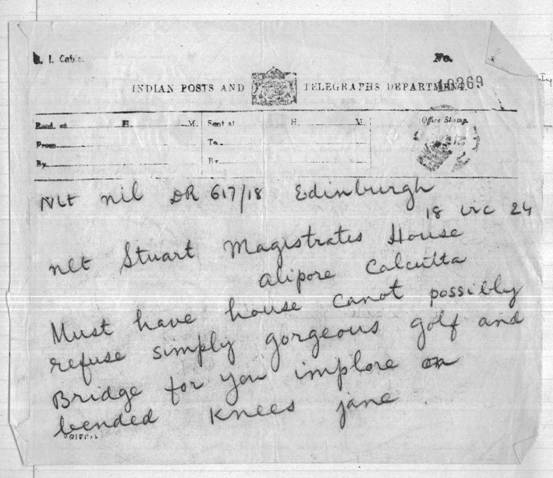 I. Cable.
No.
INDIAN POSTS AND TELEGRAPHS DEPARTMENT.
Recd. at H. M. Sent at H. M.
From To
By By
Office Stamp
Nlt nil DR 617/18 Edinburgh
18 24
nlt Stuart Magistrates House
alipore Calcutta
Must have house canot possibly
refuse simply gorgeous golf and
Bridge for you implore on
bended Knees jane